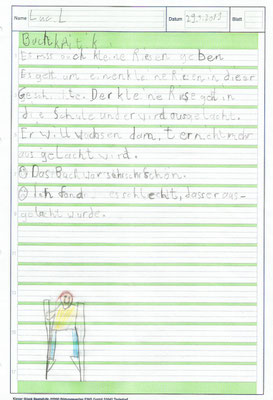 Name Luc. L Datum 29.9.2013 Blatt
Buchkritik
Es muss auch kleine Riesen geben
Es geht um einen kleinen Riesen, in dieser
Geschichte. Der kleine Riese geht in
die Schule und er wird ausgelacht.
Er will wachsen damit er nicht mehr
ausgelacht wird.
Das Buch war sehr schön.
Ich fand es schlecht, dass er aus-
gelacht wurde.